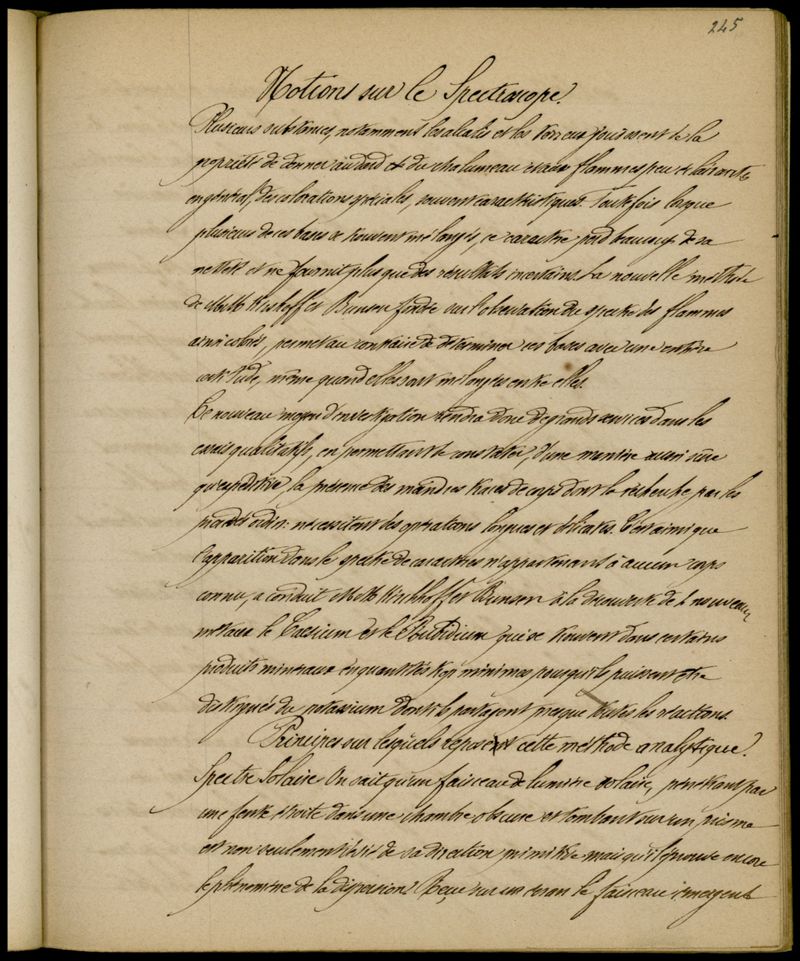 245
Notions sur le Spectroscope.
Plusieurs substances, notamment les alcalis et les terreux jouissent de la
propriété de donner au dard du chalumeau et aux flammes peu éclairantes
en général, des colorations spéciales, souvent caractéristiques. Toutefois lorsque
plusieurs de ces bases se trouvent mélangés, ce caractère perd beaucoup de sa
netteté et ne fournit plus que des résultats incertains. La nouvelle méthode
de MM Kirchoff et Bunsen fondée sur l'observation du spectre des flammes
ainsi colorées, permet au contraire de déterminer ces bases avec une entière
certitude, même quand elles sont mélangées entre elles.
Ce nouveau moyen d'investigation rendra donc de grands services dans les
essais qualitatifs, en permettant de constater, d'une manière aussi sûre
qu'expéditive, la présence des moindres traces de corps dont la recherche par les
procédés ordin: nécessitent des opérations longues et délicates. C'est ainsi que
l'apparition dans le spectre de caractères n'appartenant à aucun corps
connu, a conduit MM Kirchhoff et Bunsen à la découverte de 2 nouveaux
métaux le Caesium et le Rubidium qui se trouvent dans certains
produits minéraux en quantités trop minimes pour qu'ils puissent être
distingués du potassium dont ils partagent presque toutes les réactions.
Principes sur lesquels repose cette méthode analytique.
Spectre Solaire On sait qu'un faisceau de lumière solaire, pénétrant par
une fente étroite dans une chambre obscure et tombant sur un prisme
est non seulement dévié de sa direction primitive mais qu'il éprouve encore
le phénomène de la dispersion. Reçu sur un écran le faisceau émergent